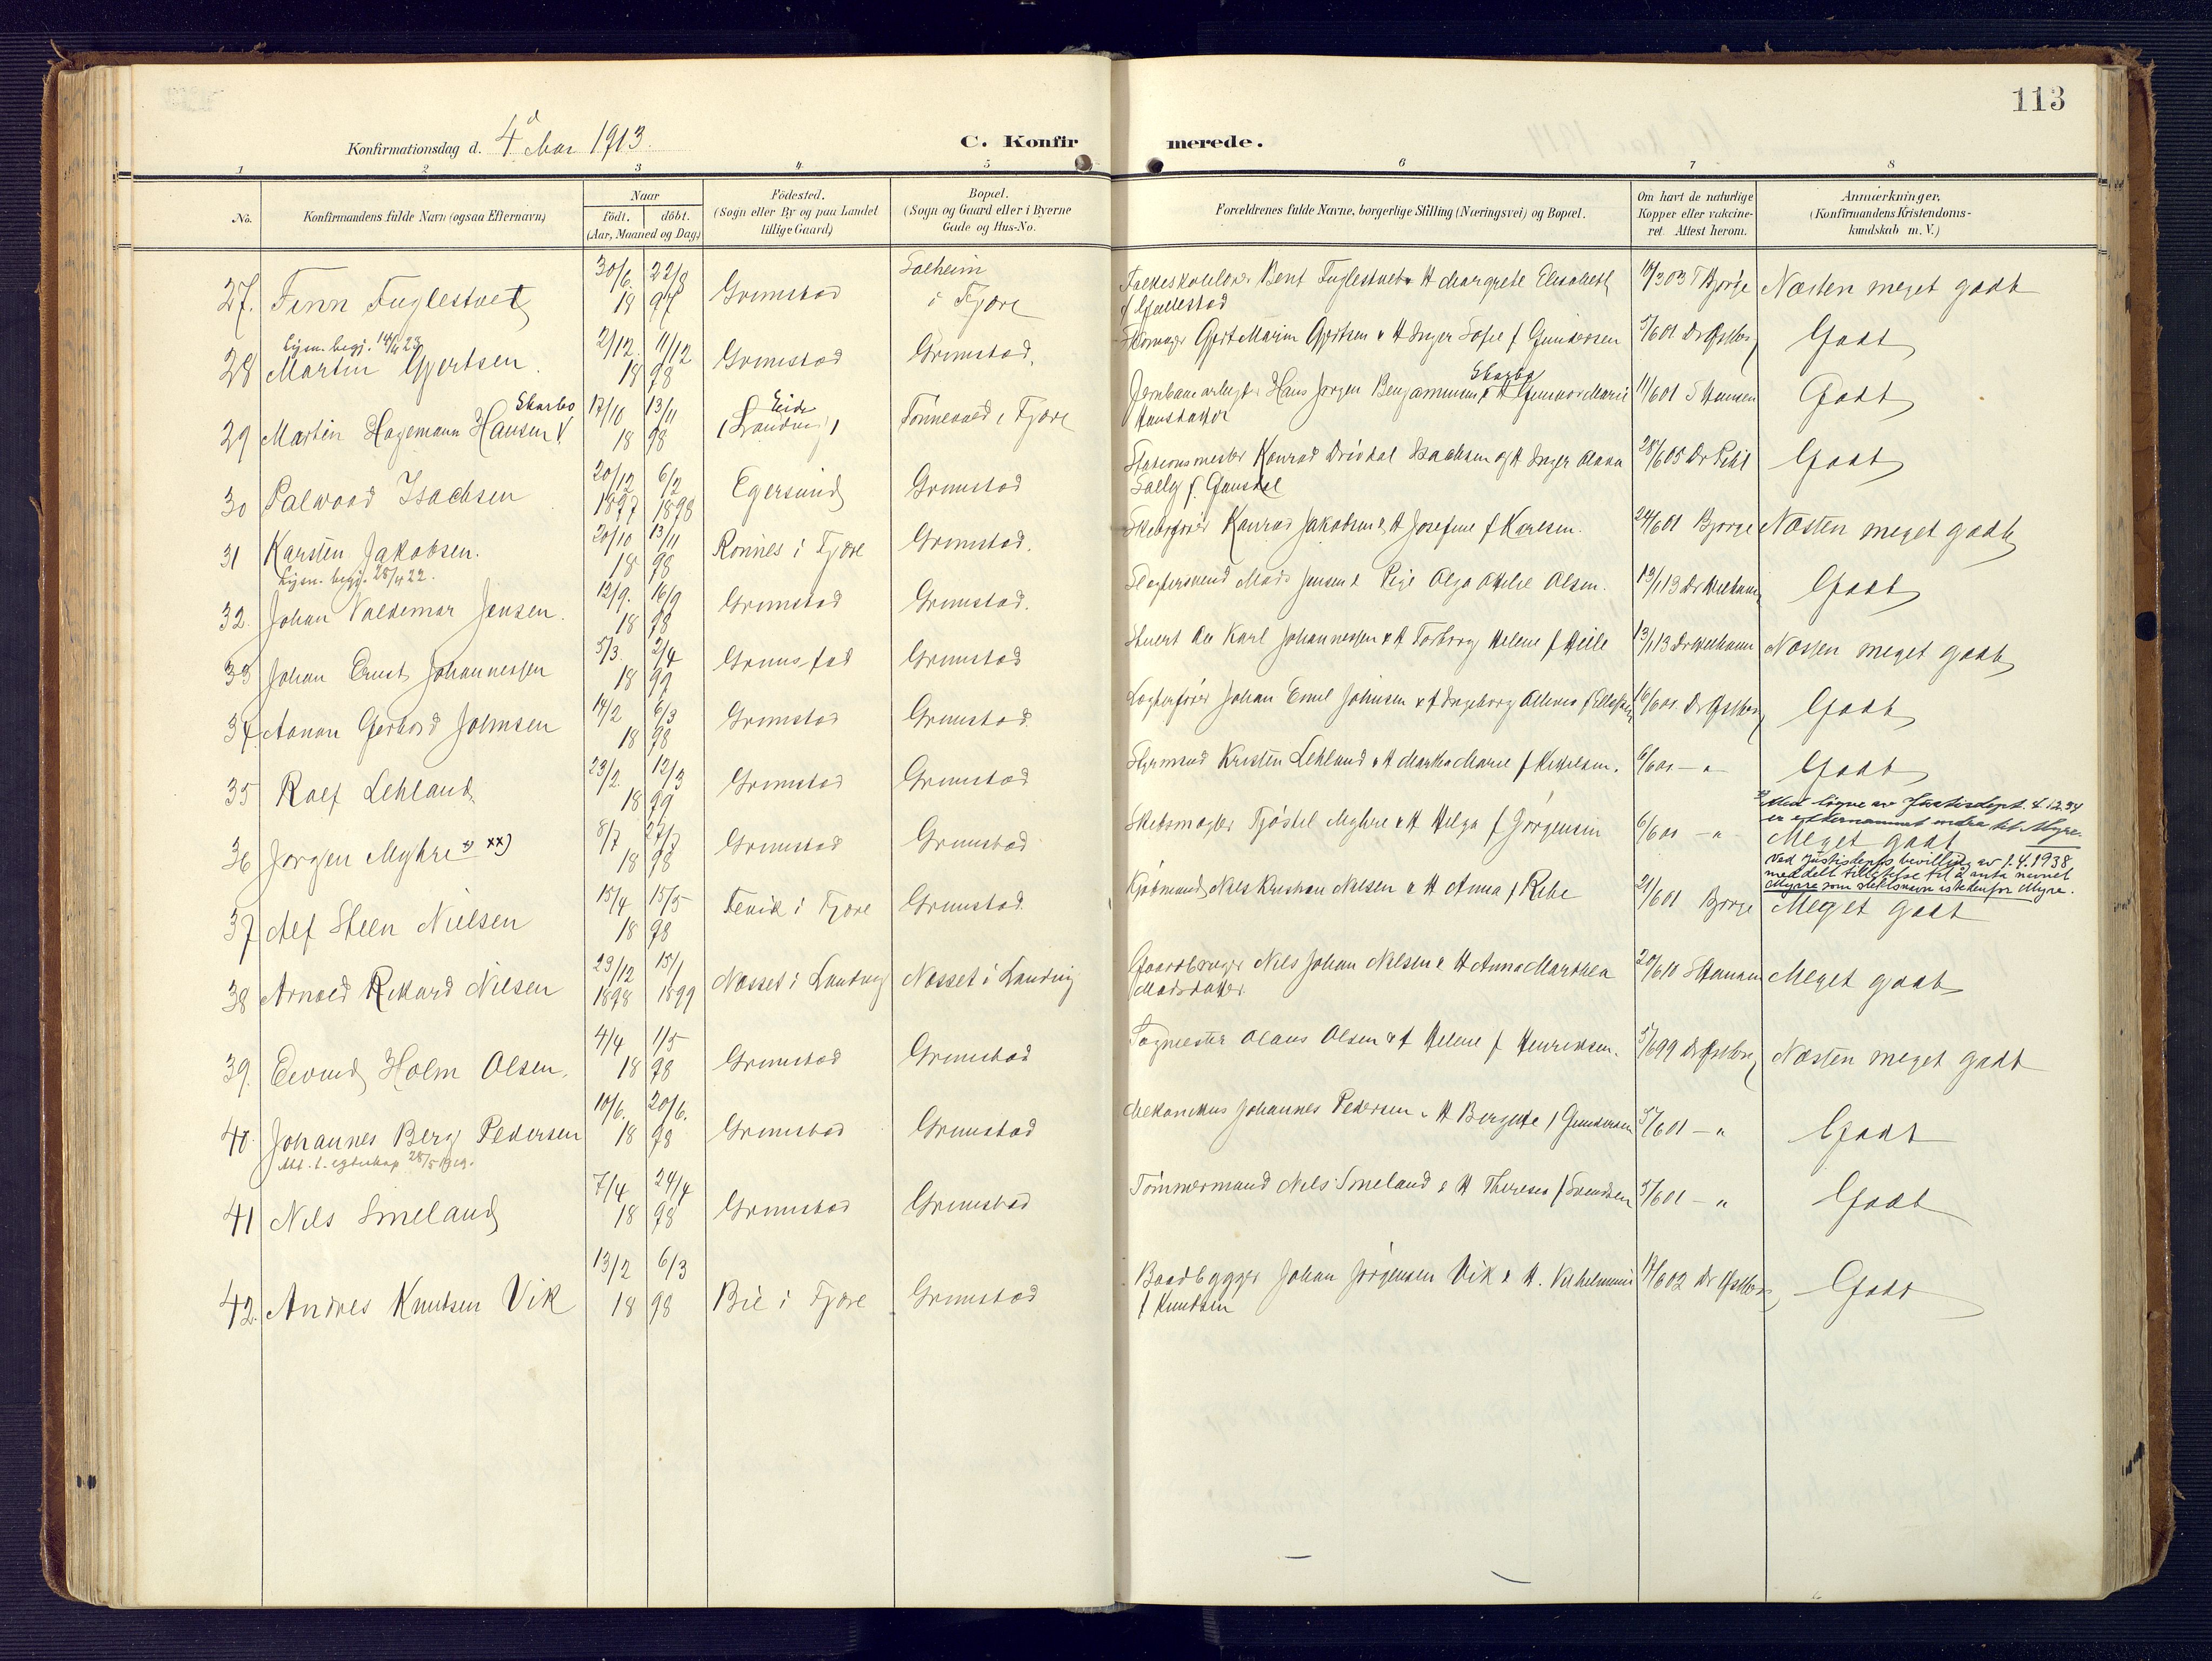 113
Konfirmationsdag d. 4 Mai 1913.
C. Konfirmerede.
1 2 3 4 5 6 7 8
No.
Konfirmandens fulde Navn (ogsaa Efternavn)
Naar
födt. döbt.
(Aar, Maaned og Dag)
Födested.
(Sogn eller By og paa Landet
tillige Gaard)
Bopæl.
(Sogn og Gaard eller i Byerne
Gade og Hus-No.
Forældrenes fulde Navne, borgerlige Stilling (Næringsvei) og Bopæl.
Om havt de naturlige
Kopper eller vakcine-
ret. Attest herom.
Anmærkninger,
(Konfirmandens Kristendoms-
kundskab m. V.)
27. Finn Fuglestvedt 30/6. 22/8 18 97 Grimstad Solheim i Fjære Bent Fuglestvedt & H Margrete Elisabeth 14/3 03 T Bjorge Næsten meget godt
f Gjellestad
Lysn. begj. 14/4 23
28 Martin Gjertsen. 2/12. 11/12 18 98 Grimstad Grimstad. Gjert Marin Gjertsen & H Inger Sofie f Gundersen 5/6 01 Godt
29 Martin Hagemann Hansen Skarbo 17/10 13/11 18 98 Eide (Landvig) Fjære Jernbanearbeider Hans Jørgen Benjaminsen Skarbo & H Gunvor Marie 11/6 01 S Hansen Godt
Hansdatter
30 Palwood Isachsen 20/12 1897 6/2 1898 Egersund Grimstad Stationsmester Konrad Isachsen og H Inger 28/6 05 Godt
Sally f.
31 Karsten Jakobsen. 20/10 13/11 18 98 Rönnes i Fjære Grimstad. Skibsfører Konrad Jakobsen & H Josefine f Karlsen. 24/6 01 Bjorge Næsten meget godt
Lysn. begj. 28/4 22.
32. Johan Valdemar Jensen. 12/9. 16/9 18 98 Grimstad Grimstad. Mads Jensen & Pige Olga Olsen. 13/1 13 Godt
33 Johan Ernst Johannessen 5/3. 2/4 18 99 Grimstad Grimstad Stuert Karl Johannessen & H Torborg Helene f 13/1 13 Næsten meget godt
34. Anton Gerhard Johnsen 14/2 6/3 18 98 Grimstad Grimstad Johan Emil Johnsen & H Ingeborg Godt
35 Rolf Lehland 23/2. 12/3 18 99 Grimstad Grimstad Styrmand Kristen Lehland & H Martha Marie f 6/6 01 — " Godt
36 Jørgen Myhre x) xx) 8/7 18 98 Grimstad Grimstad Skibsmægler Tjöstel Myhre & H Helga f Jørgensen 6/6 01 — " Meget godt
x) Med løyve av Justisdept. 4.12.34
er etternamnet endra til Myre.
Ved Justisdepts bevilling av 1.4.1938
meddelt tillatelse til å anta navnet
Myrre som slektsnavn istedenfor Myre.
37 Alf Steen Nielsen 15/4 15/5 18 98 Fevik i Fjære Grimstad Kjöbmand Niels Kristian Nielsen & H Anna f Ribe 21/6 01 Bjorge Meget godt
38 Arnold Rikard Nilsen 29/12 1898 15/1 1899 Næsset i Landvig Næsset i Landvig Gaardbruger Nils Johan Nilsen & H Anna Marthea 20/6 10 Meget godt
Madsdatter
39. Eivind Holm Olsen. 4/4 1/5 18 98 Grimstad Grimstad Olaus Olsen & H Helene f Henriksen. 5/6 99 Næsten meget godt
40. Johannes Berg Pedersen 10/6. 20/6. 18 98 Grimstad Grimstad Mekanikus Johannes Pedersen & H Bergitte f Gundersen 5/6 01 — " Godt
Att. t. egteskap 28/5 1919.
41 Nils Smeland 7/4 24/4 18 98 Grimstad Grimstad Tömmermand Nils Smeland & H Therese f Svendsen 5/6 01 — " Godt
42. Andres Knutsen Vik 13/2 6/3 18 98 Bie i Fjære Grimstad Baadbygger Johan Jørgensen Vik & H. Vilhelmine 14/6 02 Godt
f Knutsen